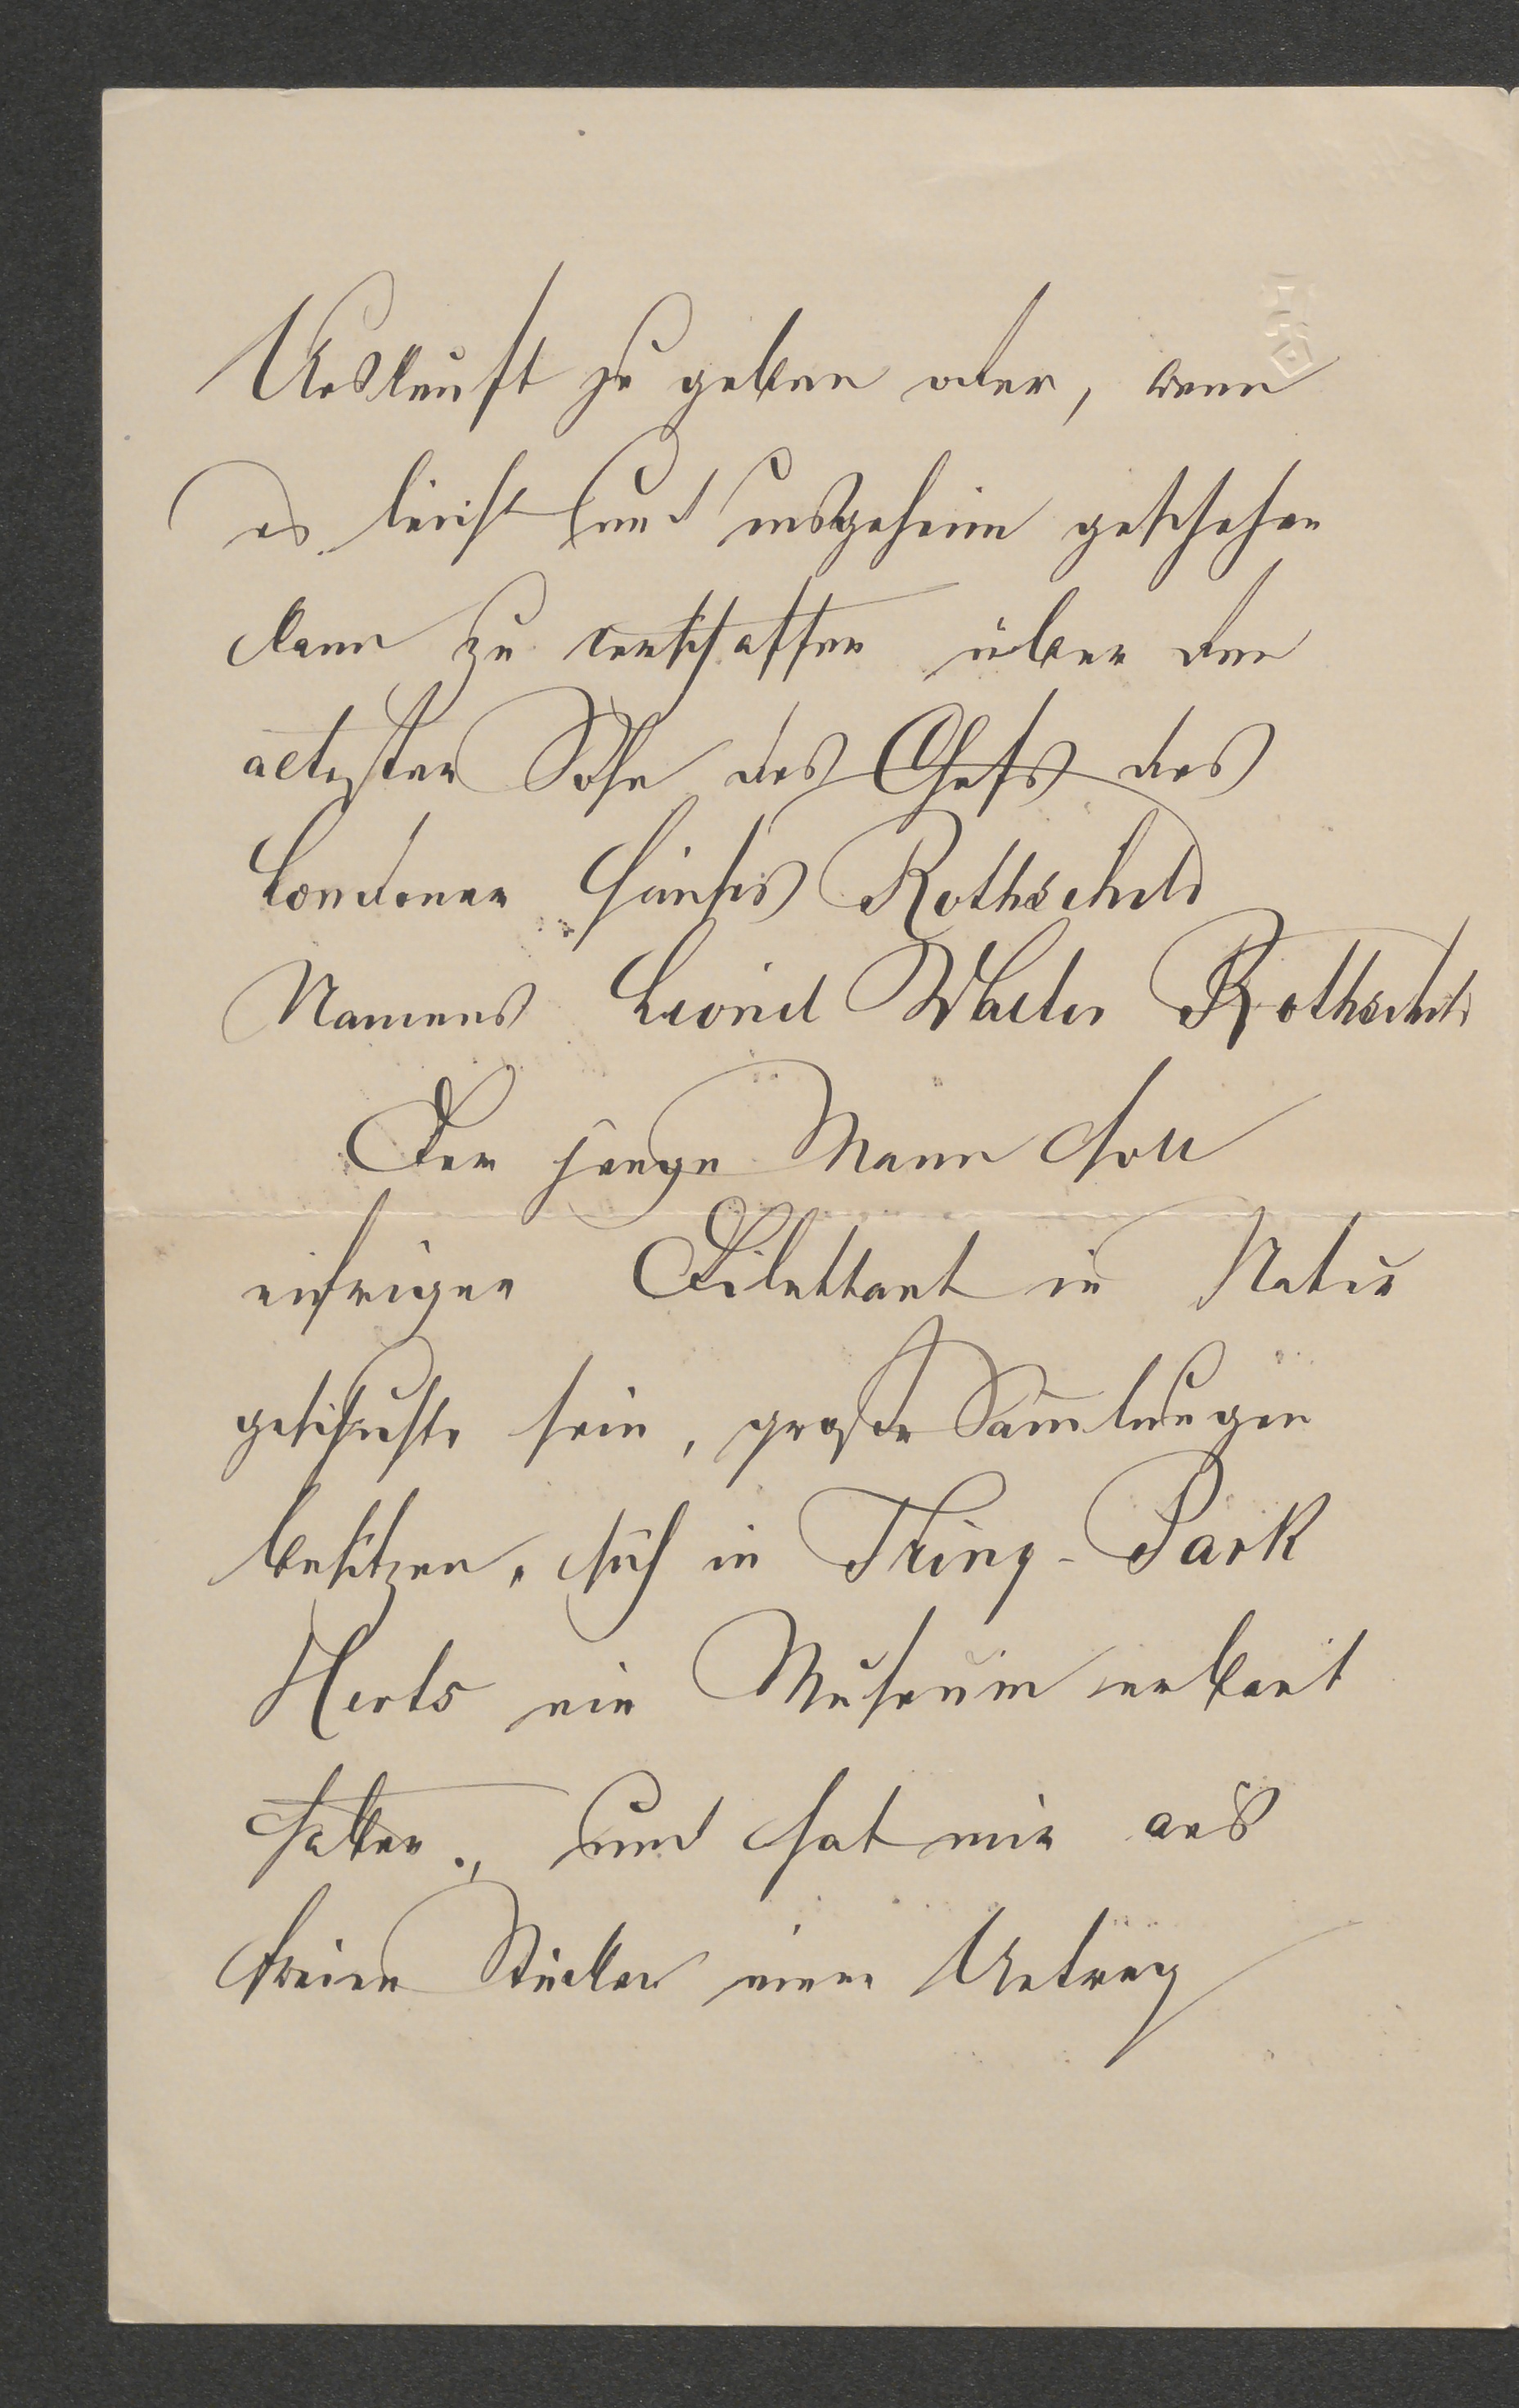 Auskunft zu geben oder, wenn
es leicht und insgeheim geschehen
kann zu verschaffen über den
ältesten Sohn des Chefs des
Londoner Hauses Rothschild
Namens Leonel Walter Rothschild
Der junge Mann soll
eifriger Dilettant in Natur
geschichte sein, große Sammlungen
besitzen, sich in Tring-Park
Herts ein Museum erbaut
haben, und hat mir aus
freien Stücken einen Antrag